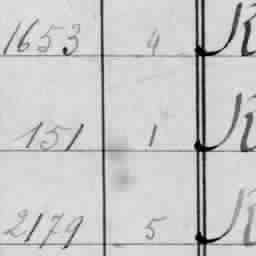 1653 4 K
151 1 K
2179 5 K